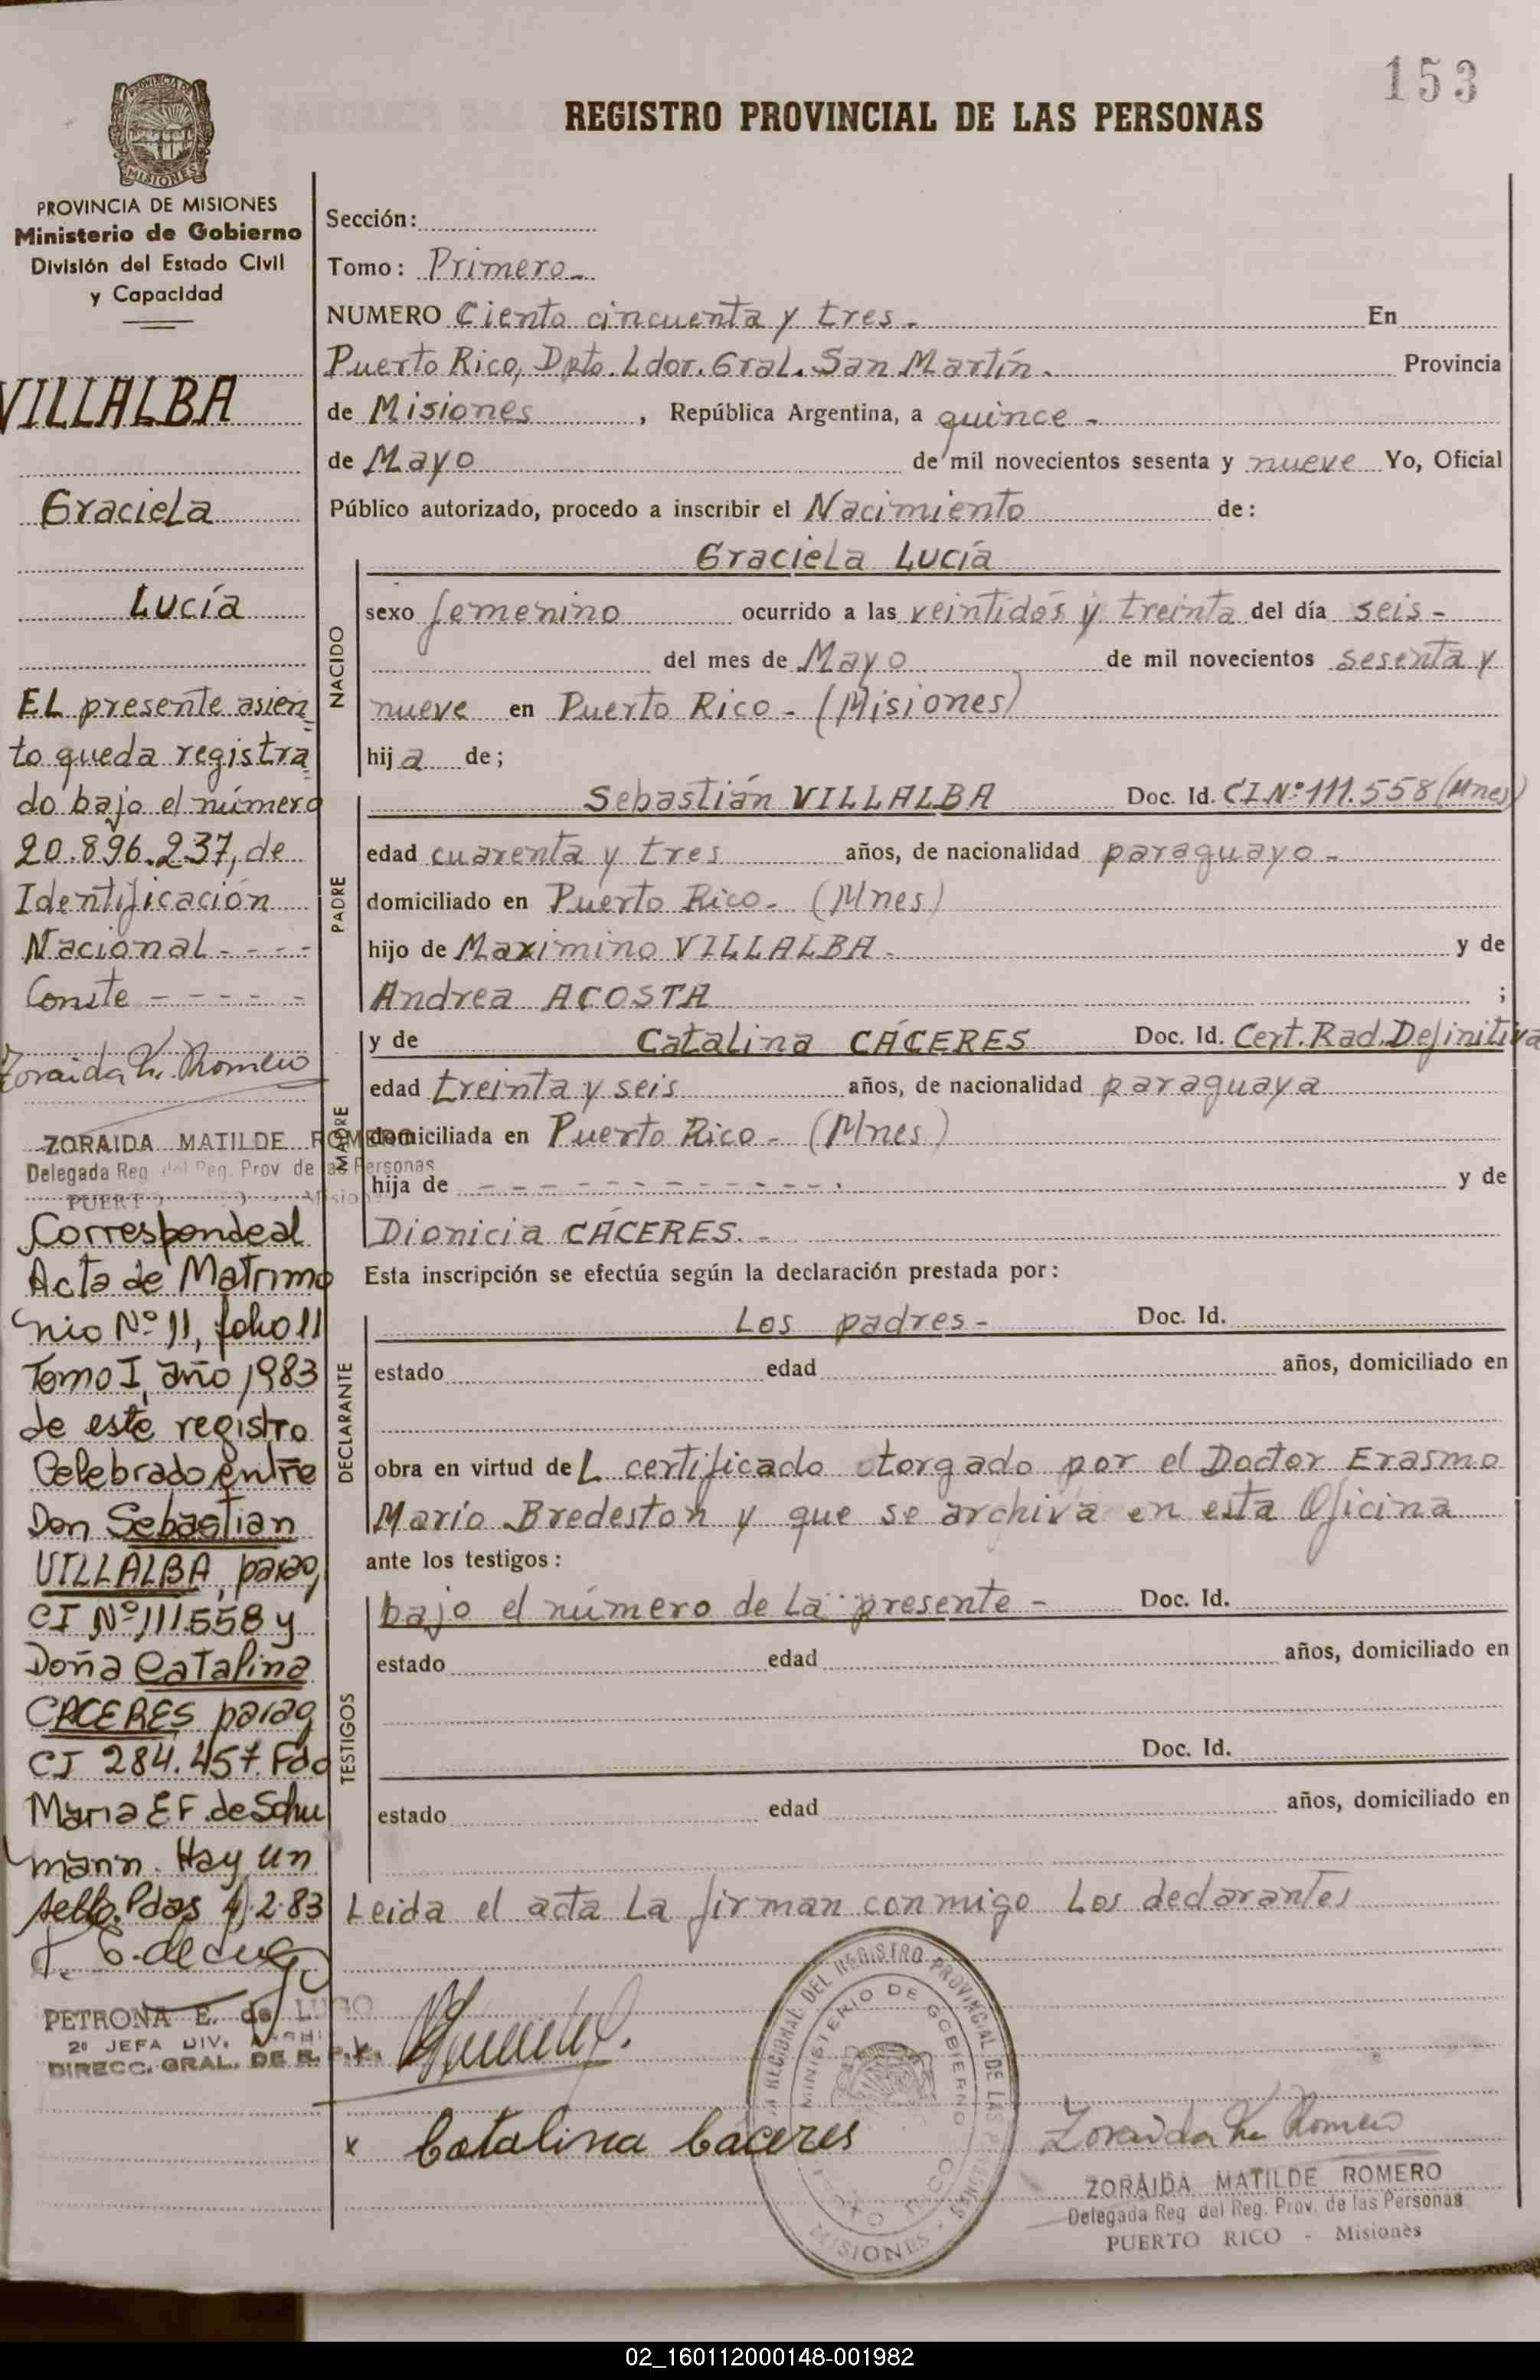 153
REGISTRO PROVINCIAL DE LAS PERSONAS
PROVINCIA DE MISIONES
Ministerio de Gobierno
División del Estado Civil
y Capacidad
VILLALBA
Graciela
Lucía
EL presente asien
to queda registra
do bajo el número
20.896.237, de
Identificación
Nacional - - - -
Conste - - - - -
Zoraida M. Romero
ZORAIDA MATILDE ROMERO
Delegada Reg del Reg. Prov de las Personas
PUERTO RICO - Misiones
Corresponde al
Acta de Matrimo
nio Nº 11, folio 11
Tomo I, año 1983
de este registro
Celebrado entre
Don Sebastian
VILLALBA, parag,
CI Nº 111.558 y
Doña Catalina
CACERES parag
CI 284.457. Fdo
Maria E.F. de Schu
mann. Hay un
sello. Pdas 4).2.83
PETRONA E. de LUGO
2º JEFA DIV.
DIRECC. GRAL. DE R. P.
Sección:
Tomo: Primero -
NUMERO Ciento cincuenta y tres - En
Puerto Rico, Dpto. Ldor. Gral. San Martín - Provincia
de Misiones, República Argentina, a quince -
de Mayo de mil novecientos sesenta y nueve Yo, Oficial
Público autorizado, procedo a inscribir el Nacimiento de:
NACIDO
Graciela Lucía
sexo femenino ocurrido a las veintidós y treinta del día seis -
del mes de Mayo de mil novecientos sesenta y
nueve en Puerto Rico - (Misiones)
hija de;
PADRE
Sebastián VILLALBA Doc. Id. CI.Nº 111.558 (Mnes)
edad cuarenta y tres años, de nacionalidad paraguayo -
domiciliado en Puerto Rico - (Mnes)
hijo de Maximino VILLALBA - y de
Andrea ACOSTA ;
MADRE
y de Catalina CÁCERES Doc. Id. Cert. Rad. Definitiva
edad treinta y seis años, de nacionalidad paraguaya
domiciliada en Puerto Rico - (Mnes)
hija de - - - - - - - - - - - - y de
Dionicia CÁCERES. -
Esta inscripción se efectúa según la declaración prestada por:
DECLARANTE
Los padres - Doc. Id.
estado edad años, domiciliado en
obra en virtud deL certificado otorgado por el Doctor Erasmo
Mario Bredeston y que se archiva en esta Oficina
ante los testigos:
TESTIGOS
bajo el número de La presente - Doc. Id.
estado edad años, domiciliado en
Doc. Id.
estado edad años, domiciliado en
Leida el acta La firman conmigo Los declarantes
x
x Catalina Cáceres
REGIONAL DEL REGISTRO PROVINCIAL DE LAS PERSONAS
MINISTERIO DE GOBIERNO
PTO. RICO
MISIONES
Zoraida M. Romero
ZORAIDA MATILDE ROMERO
Delegada Reg del Reg. Prov. de las Personas
PUERTO RICO - Misiones
02_160112000148-001982